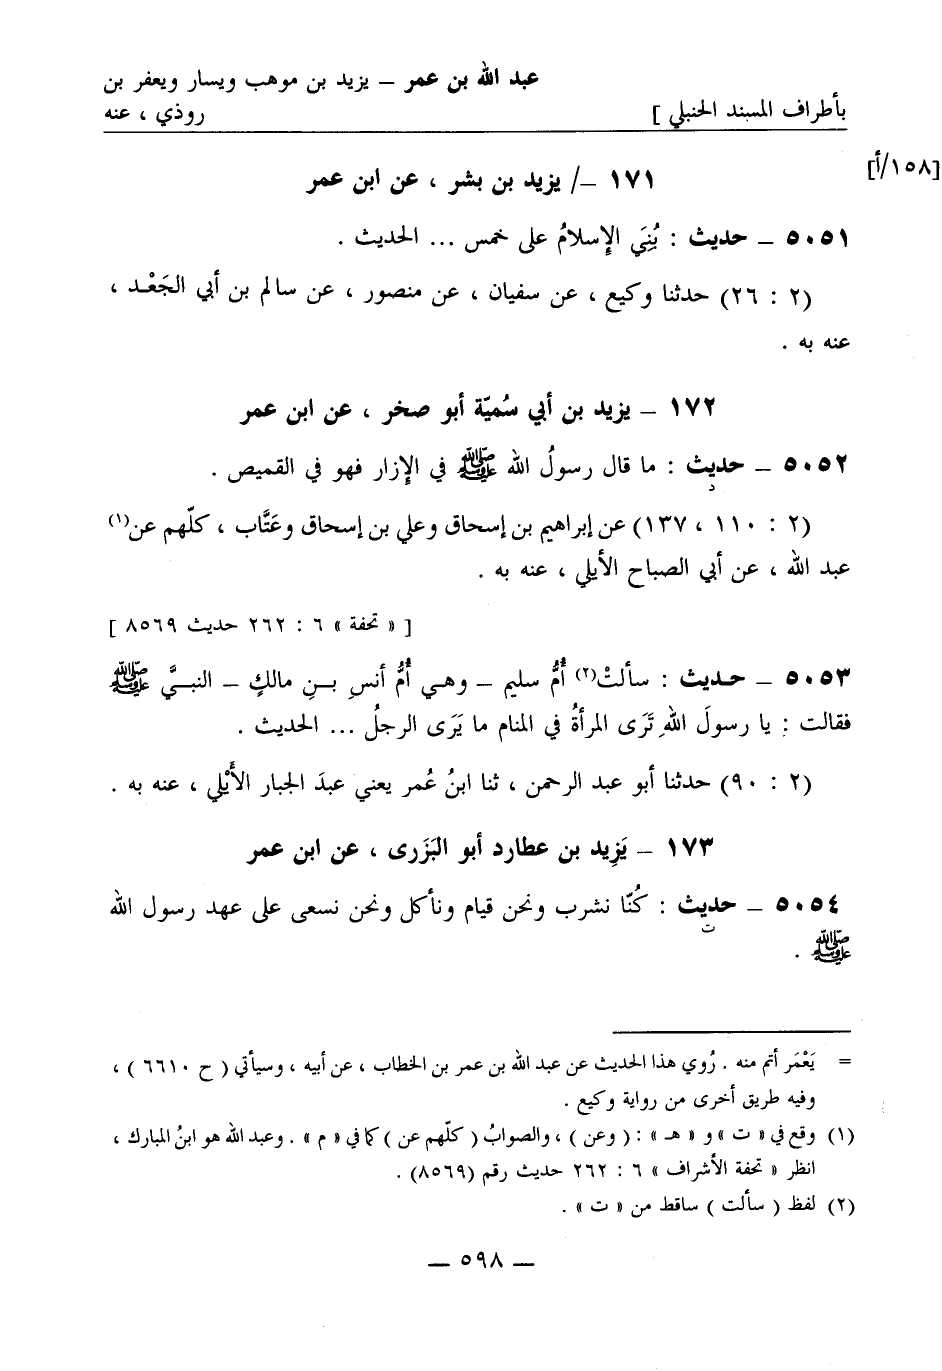 عبد الله بن عمر – يزيد بن موهب ويسار ويعفر بن
بأطراف المسند الحنبلي ]
روذي ، عنه
[١٥٨/أ]
١٧١ –/ يزيد بن بشر ، عن ابن عمر
٥٠٥١ – حديث : بُنِيَ الإِسلامُ على خمس ... الحديث .
(٢ : ٢٦) حدثنا وكيع ، عن سفيان ، عن منصور ، عن سالم بن أبي الجَعْد ،
عنه به .
١٧٢ – يزيد بن أبي سُميّة أبو صخر ، عن ابن عمر
٥٠٥٢ – حديث : ما قال رسولُ الله ﷺ في الإِزار فهو في القميص .
د
(٢ : ١١٠ ، ١٣٧) عن إبراهيم بن إسحاق وعلي بن إسحاق وعَتَّاب ، كلّهم عن(١)
عبد الله ، عن أبي الصباح الأيلي ، عنه به .
[ « تحفة » ٦ : ٢٦٢ حديث ٨٥٦٩ ]
٥٠٥٣ – حديث : سألتْ(٢) أُمُّ سليم – وهي أُمُّ أنسِ بنِ مالكٍ – النبيَّ ﷺ
فقالت : يا رسولَ اللهِ تَرَى المرأةُ في المنام ما يَرَى الرجلُ ... الحديث .
(٢ : ٩٠) حدثنا أبو عبد الرحمن ، ثنا ابنُ عُمر يعني عبدَ الجبار الأَيْلي ، عنه به .
١٧٣ – يَزِيد بن عطارد أبو البَزَرى ، عن ابن عمر
٥٠٥٤ – حديث : كُنّا نشرب ونحن قيام ونأكل ونحن نسعى على عهد رسول الله
ت
ﷺ .
= يَعْمَر أتم منه . رُوي هذا الحديث عن عبد الله بن عمر بن الخطاب ، عن أبيه ، وسيأتي ( ح ٦٦١٠ ) ،
وفيه طريق أخرى من رواية وكيع .
(١) وقع في « ت » و « هـ » : ( وعن ) ، والصوابُ ( كلّهم عن ) كما في « م » . وعبد الله هو ابنُ المبارك ،
انظر « تحفة الأشراف » ٦ : ٢٦٢ حديث رقم (٨٥٦٩) .
(٢) لفظ ( سألت ) ساقط من « ت » .
– ٥٩٨ –